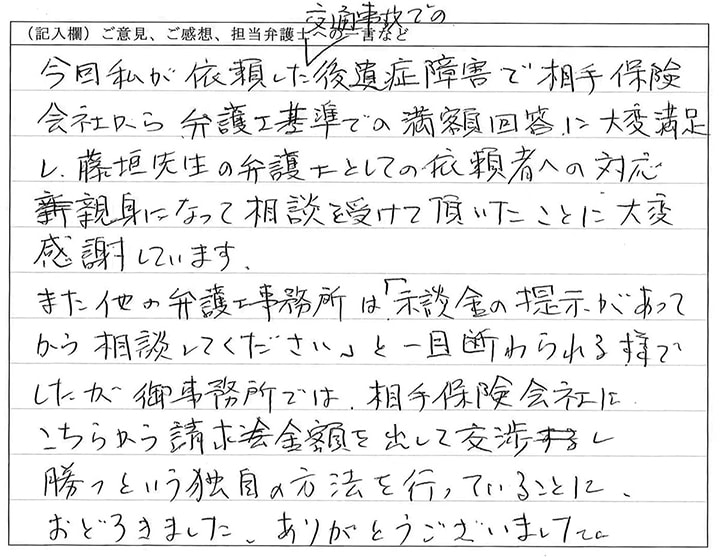 交通事故での
（記入欄）ご意見、ご感想、担当弁護士への一言など
今回私が依頼した後遺症障害で相手保険
会社から弁護士基準での満額回答に大変満足
し、藤垣先生の弁護士としての依頼者への対応
親身になって相談を受けて頂いたことに大変
感謝しています。
また他の弁護士事務所は「示談金の提示があって
から相談してください」と一旦断わられる様で
したが御事務所では、相手保険会社に
こちらから請求金額を出して交渉し
勝つという独自の方法を行っていることに、
おどろきました、ありがとうございました。